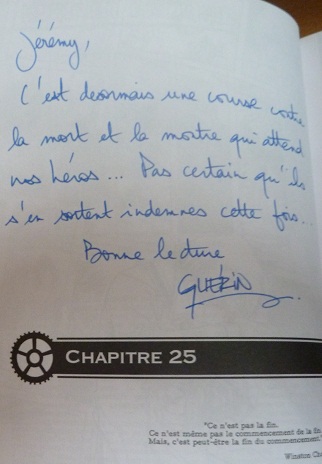 Jérémy,
C'est desormais une course contre
la mort et la montre qui attend
nos héros... Pas certain qu'ils
s'en sortent indemnes cette fois...
Bonne lecture
GUÉRIN
CHAPITRE 25
"Ce n'est pas la fin.
Ce n'est même pas le commencement de la fin
Mais, c'est peut-être la fin du commencement."
Winston